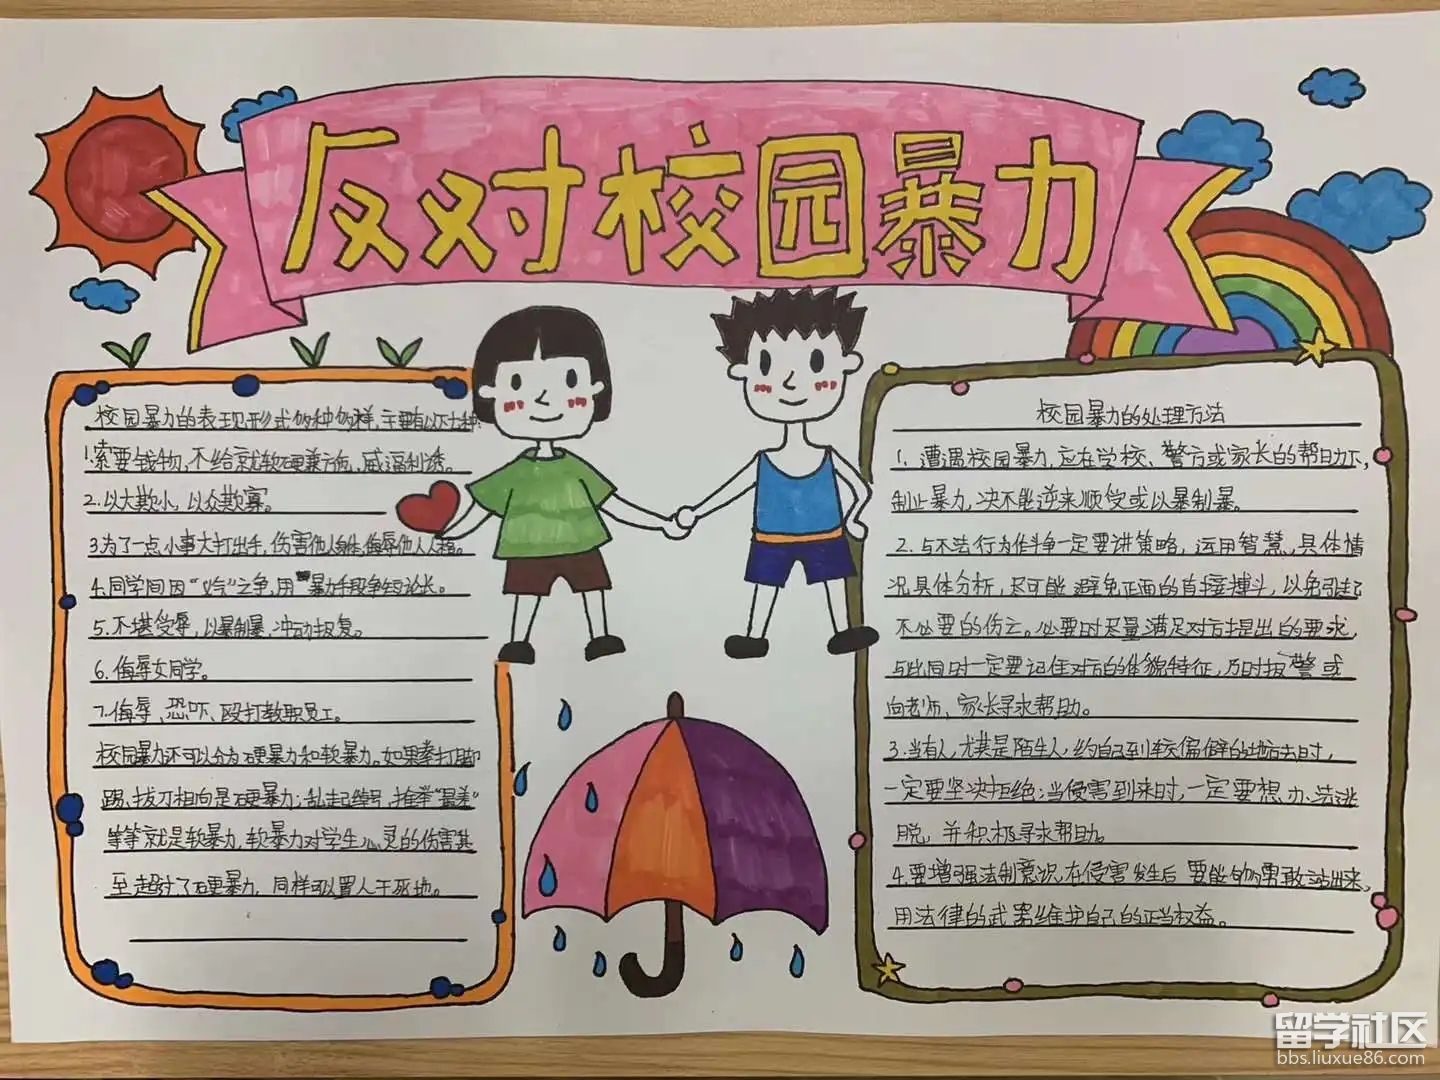 反对校园暴力
校园暴力的表现形式多种多样,主要有以下七种:
1.索要钱物,不给就软硬兼施、威逼利诱。
2.以大欺小,以众欺寡。
3.为了一点小事大打出手,伤害他人身体、侮辱他人人格。
4.同学间因“义气”之争,用暴力手段争短论长。
5.不堪受辱,以暴制暴,冲动报复。
6.侮辱女同学。
7.侮辱、恐吓、殴打教职员工。
校园暴力还可以分为硬暴力和软暴力。如果拳打脚
踢、拔刀相向是硬暴力;乱起绰号,推举“最差”
等等就是软暴力,软暴力对学生心灵的伤害甚
至超过了硬暴力,同样可以置人于死地。
校园暴力的处理方法
1、遭遇校园暴力,应在学校、警方或家长的帮助下,
制止暴力,决不能逆来顺受或以暴制暴。
2、与不法行为作斗争一定要讲策略,运用智慧,具体情
况具体分析,尽可能避免正面的直接搏斗,以免引起
不必要的伤亡。必要时尽量满足对方提出的要求,
与此同时一定要记住对方的体貌特征,及时报警或
向老师、家长寻求帮助。
3、当有人,尤其是陌生人,约自己到较偏僻的地方去时,
一定要坚决拒绝;当侵害到来时,一定要想办法逃
脱,并积极寻求帮助。
4.要增强法制意识,在侵害发生后要能够勇敢站出来,
用法律的武器维护自己的正当权益。
留学社区
bbs.liuxue86.com